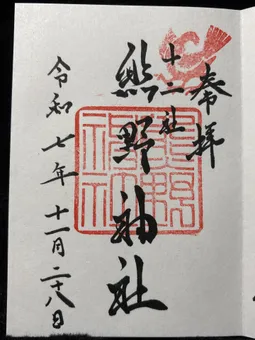 奉拝
十二社
熊野神社
令和七年十一月二十八日